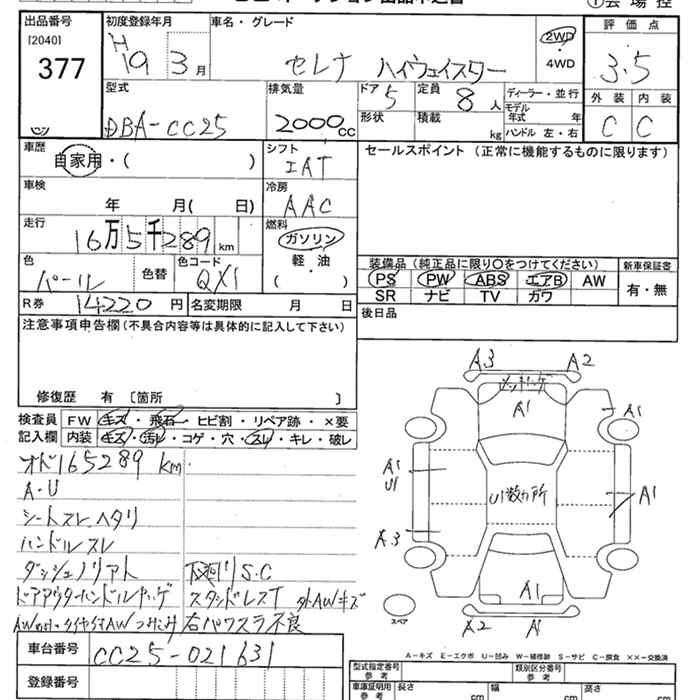 出品番号
[2040]
377
初度登録年月
H
19 3月
車名・グレード
セレナ ハイウェイスター
2WD
・
4WD
評価点
3.5
外装 内装
C C
型式
DBA-CC25
排気量
2000cc
ドア 5
定員 8人
形状
積載 kg
ディーラー・並行
モデル年式 年
ハンドル 左・右
車歴
自家用・( )
シフト
IAT
セールスポイント (正常に機能するものに限ります)
車検
年 月( 日)
冷房
AAC
走行
16万5千289km
燃料
ガソリン
軽・油
( )
色
パール
色替
色コード
QX1
装備品 (純正品に限り○をつけてください)
PS PW ABS エアB AW
SR ナビ TV カワ
新車保証書
有・無
R券 14220円
名変期限 月 日
後日品
注意事項申告欄 (不具合内容等は具体的に記入して下さい)
修復歴 有 [箇所 ]
検査員
記入欄
FW キズ・飛石・ヒビ割・リペア跡・×要
内装 キズ・汚レ・コゲ・穴・スレ・キレ・破レ
オド165289km
A・U
シートスレヘタリ
ハンドルスレ
下廻りS.C
スタッドレスT 外AWキズ
右パワスラ不良
A3 A2
A1
A1
A1
U1
U1数ヵ所
A1
A3
A1
スペア
A2 A1
A-キズ E-エクボ U-凹み W-補修跡 S-サビ C-腐食 ××-交換済
車台番号 CC25-021631
登録番号
型式指定番号
参考
類別区分番号
参考
車庫証明用
参考
長さ cm
幅 cm
高さ cm